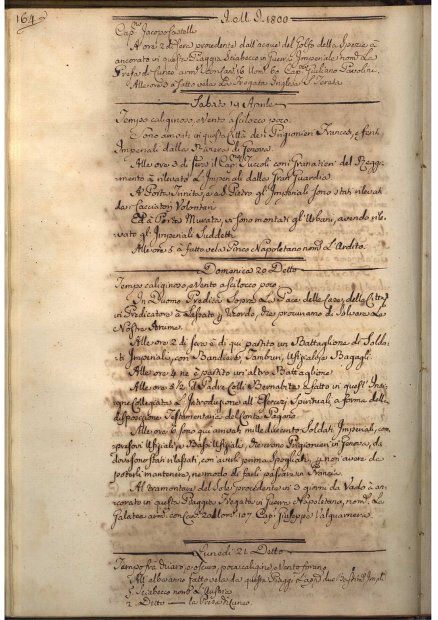 164
J. M. J. 1800
Cap.no Jacopo Castelli
A ore 2 di sera procedente dall'acque del Golfo della Spezie à
ancorato in questa Piaggia Sciabecco in Guerra Imperiale nom.to La
Presa di Cuneo arm.to con Can.i 16 Uom.i 60 Cap.no Giuliano Pavolini.
Alle ore 3 à fatto vela La Fregata Inglese S. Teresa
Sabato 19 Aprile
Tempo caliginoso, e Vento a Scilocco poco.
Sono arrivati in questa Città de i Prigionieri Francesi, e feriti
Imperiali dalla Riviera di Genova.
Alle ore 3 di sera il Cap.no Tuccoli con i Granatieri del Regg
mento à rilevato gl'Imperiali dalla Gran Guardia
A Porta Trinita, e a S. Pietro gl'Imperiali sono stati rilevati
da i Cacciatori Volontari
Ed a Porta Murata, vi sono montati gl'Urbani, avendo rile
vato gl'Imperiali suddetti
Alle ore 5 à fatto vela Pinco Napoletano nom.to L'Ardito.
Domenica 20 Detto
Tempo caliginoso, e Vento a Scilocco poco
In Duomo Predica Sopra La Pace delle Case, e della Città
il Predicatore à lasciato p Ricordo, che procuriamo di Salvare La
Nostra Anima.
Alle ore 2 di sera è di qui partito un Battaglione di Solda
ti Imperiali, con Bandiere, Tamburi, Ufiziali, e Bagagli.
Alle ore 4 ne è partito un'altro Battaglione
Alle ore 3 1/2 il Padre Colli Bernabita à fatto in quest'Insi
gne Collegiata L'Introduzione all'Esercizj Spirituali, a forma della
disposizione Testamentaria del Conte Pagano
Alle ore 5 sono qui arrivati mille duecento Soldati Imperiali, com
presovi Ufiziali, e Bassi Ufiziali, che erono Prigionieri in Genova, da
dove sono stati rilasciati, con averli prima spogliati, p non avere da
poterli mantenere, ne modo di farli passare in Francia.
Al tramontare del Sole procedente in 3 giorni da Vado à an
corato in questa Piaggia Fregata in Guerra Napoletana, nom.ta La
Galatea arm.ta con Can.i 20 Uom.i 107 Cap.no Filippo Valguarnera.
Lunedì 21 Detto
Tempo fra chiaro, e oscuro, poca caligine, e Vento fuorino.
All'alba anno fatto vela da questa Piaggia Legni due Bastim.ti Imp.li
Sciabecco nom.to L'Austria
2. Detto — La Presa di Cuneo.